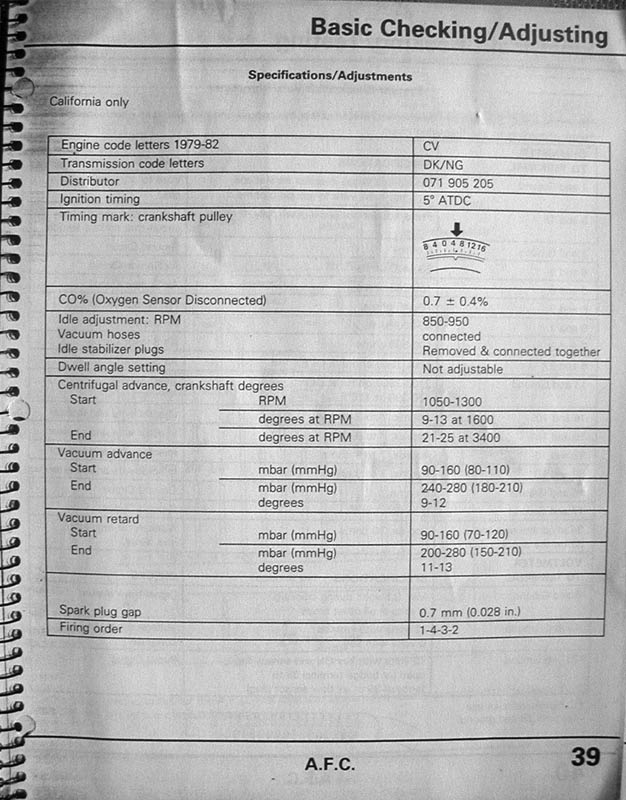 Basic Checking/Adjusting
Specifications/Adjustments
California only
Engine code letters 1979-82 CV
Transmission code letters DK/NG
Distributor 071 905 205
Ignition timing 5° ATDC
Timing mark: crankshaft pulley
8 4 0 4 8 12 16
CO% (Oxygen Sensor Disconnected) 0.7 ± 0.4%
Idle adjustment: RPM 850-950
Vacuum hoses connected
Idle stabilizer plugs Removed & connected together
Dwell angle setting Not adjustable
Centrifugal advance, crankshaft degrees
Start RPM 1050-1300
degrees at RPM 9-13 at 1600
End degrees at RPM 21-25 at 3400
Vacuum advance
Start mbar (mmHg) 90-160 (80-110)
End mbar (mmHg) 240-280 (180-210)
degrees 9-12
Vacuum retard
Start mbar (mmHg) 90-160 (70-120)
End mbar (mmHg) 200-280 (150-210)
degrees 11-13
Spark plug gap 0.7 mm (0.028 in.)
Firing order 1-4-3-2
A.F.C.
39